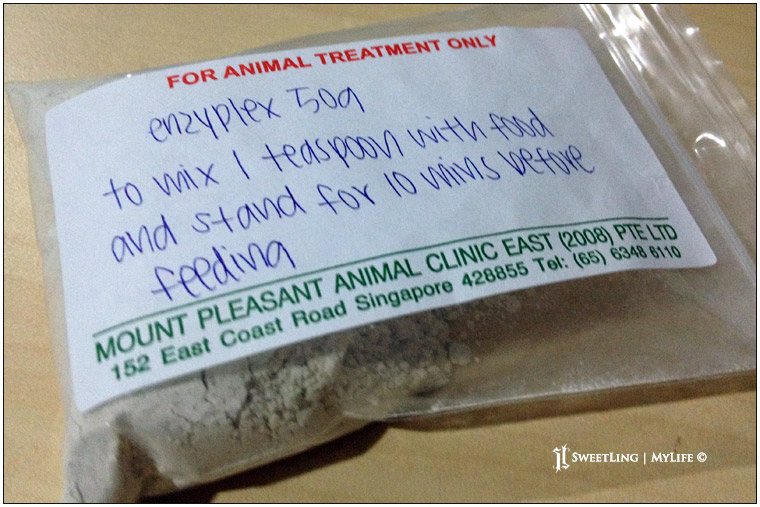 FOR ANIMAL TREATMENT ONLY
enzyplex 50g
to mix 1 teaspoon with food
and stand for 10 mins before
feeding
MOUNT PLEASANT ANIMAL CLINIC EAST (2008) PTE LTD
152 East Coast Road Singapore 428855 Tel: (65) 6348 6110
SWEETLING | MYLIFE ©